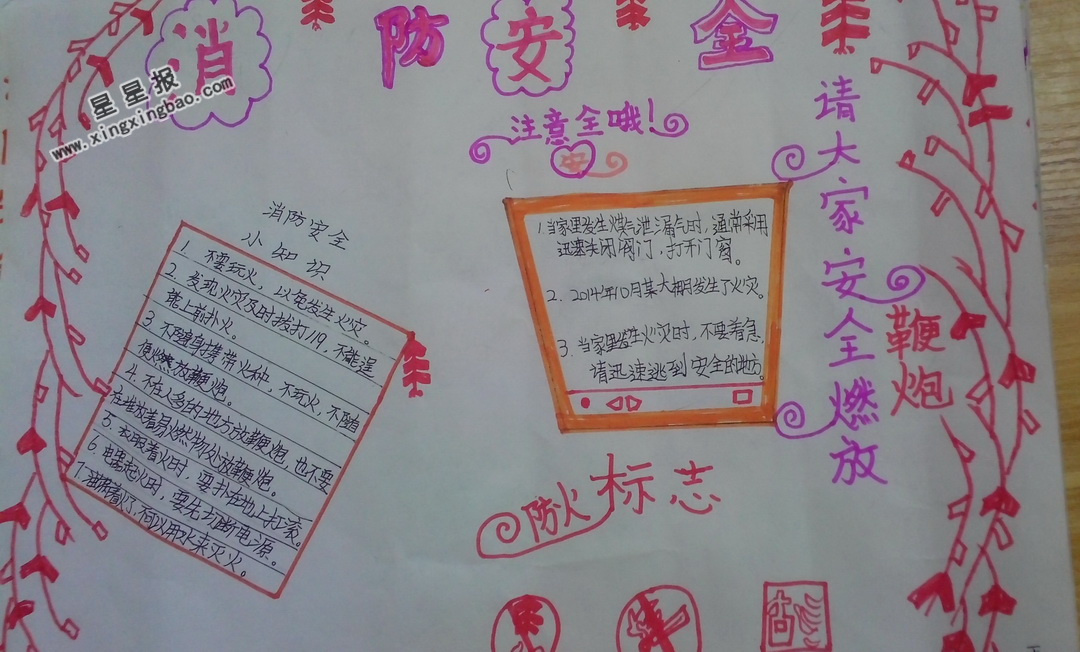 消防安全
星星报
www.xingxingbao.com
注意全哦!
安
消防安全
小知识
1. 不要玩火,以免发生火灾。
2. 发现火灾及时拨打119,不能逞
能上前扑火。
3. 不随身携带火种,不玩火,不随
便燃放鞭炮。
4. 不在人多的地方放鞭炮,也不要
在堆放着易燃物处放鞭炮。
5. 衣服着火时,要扑在地上打滚。
6. 电器起火时,要先切断电源。
7. 油锅着火了,不可以用水来灭火。
1. 当家里发生煤气泄漏气时,通常采用
迅速关闭阀门,打开门窗。
2. 2014年10月某大棚发生了火灾。
3. 当家里发生火灾时,不要着急,
请迅速逃到安全的地方。
请大家安全燃放
鞭炮
防火标志